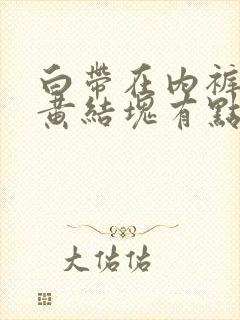 白帶在內褲
黃結塊有點
大佑佑